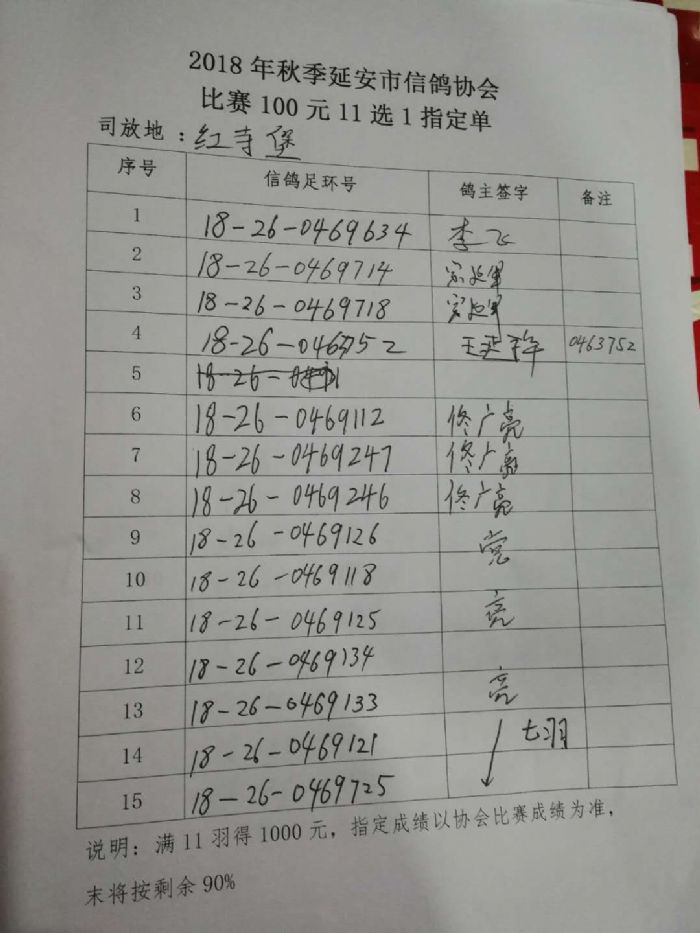 2018年秋季延安市信鸽协会
比赛100元11选1指定单
司放地：红寺堡
序号 信鸽足环号 鸽主签字 备注
1 18-26-0469634 李飞
2 18-26-0469714
3 18-26-0469718
4 18-26-0463752 王延军 0463752
5 18-26-
6 18-26-0469112 佟广亮
7 18-26-0469247 佟广亮
8 18-26-0469246 佟广亮
9 18-26-0469126 亮
10 18-26-0469118
11 18-26-0469125 亮
12 18-26-0469134
13 18-26-0469133 亮
14 18-26-0469121 七羽
15 18-26-0469725
说明：满11羽得1000元，指定成绩以协会比赛成绩为准，
末将按剩余90%